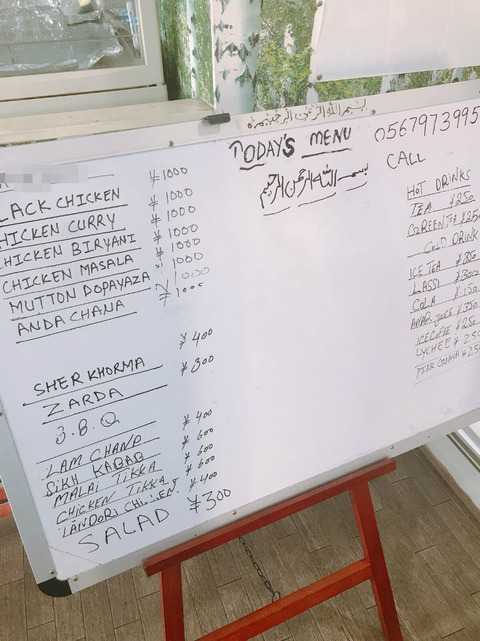 بسم الله الرحمن الرحيم
TODAY'S MENU
بسم الله الرحمن الرحيم
0567973995
CALL
¥1000
LACK CHICKEN ¥1000
HICKEN CURRY ¥1000
CHICKEN BIRYANI ¥1000
CHICKEN MASALA ¥1000
MUTTON DOPAYAZA ¥1000
ANDA CHANA ¥1000
SHER KHORMA ¥400
ZARDA ¥300
B.B.Q
LAM CHANP ¥400
SIKH KABAB ¥600
MALAI TIKKA ¥600
CHICKEN TIKKA ¥600
TANDORI CHICKEN ¥400
SALAD ¥300
HOT DRINKS
TEA ¥250
GREEN TEA ¥250
COLD DRINK
ICE TEA ¥350
LASSI ¥300
COLA ¥150
JUICE ¥350
ICE COFFE ¥250
LYCHEE ¥25
GUAVA ¥25